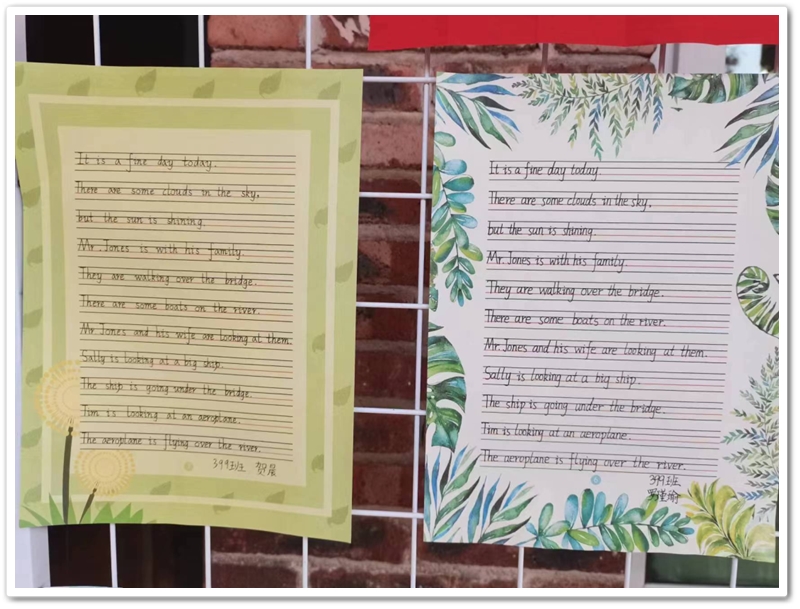 It is a fine day today.
There are some clouds in the sky,
but the sun is shining.
Mr. Jones is with his family.
They are walking over the bridge.
There are some boats on the river.
Mr. Jones and his wife are looking at them.
Sally is looking at a big ship.
The ship is going under the bridge.
Tim is looking at an aeroplane.
The aeroplane is flying over the river.
399班
It is a fine day today.
There are some clouds in the sky,
but the sun is shining.
Mr. Jones is with his family.
They are walking over the bridge.
There are some boats on the river.
Mr. Jones and his wife are looking at them.
Sally is looking at a big ship.
The ship is going under the bridge.
Tim is looking at an aeroplane.
The aeroplane is flying over the river.
399班